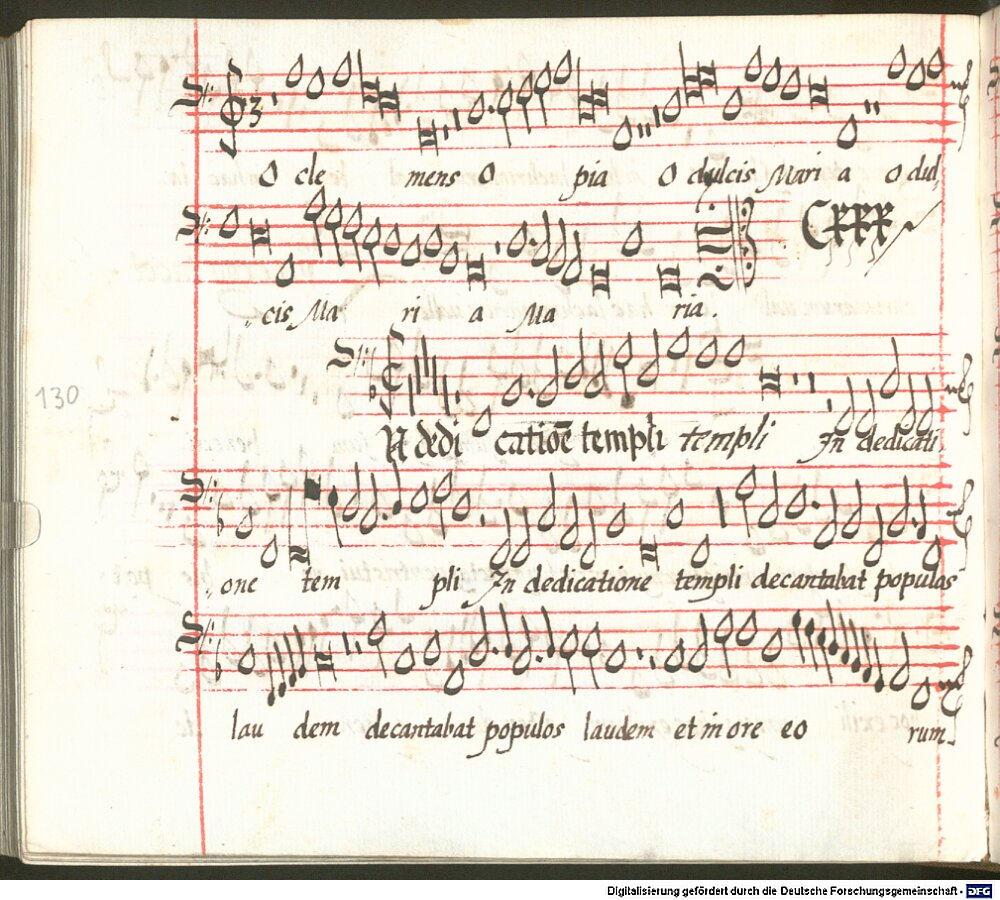 3
O cle mens O pia O dulcis Mari a o dul,
,cis Ma ri a Ma ria.
130
In dedi catiōe templi templi In dedicati,
,one tem pli In dedicatione templi decantabat populas
lau dem decantabat populos laudem et in ore eo rum
Digitalisierung gefördert durch die Deutsche Forschungsgemeinschaft - DFG